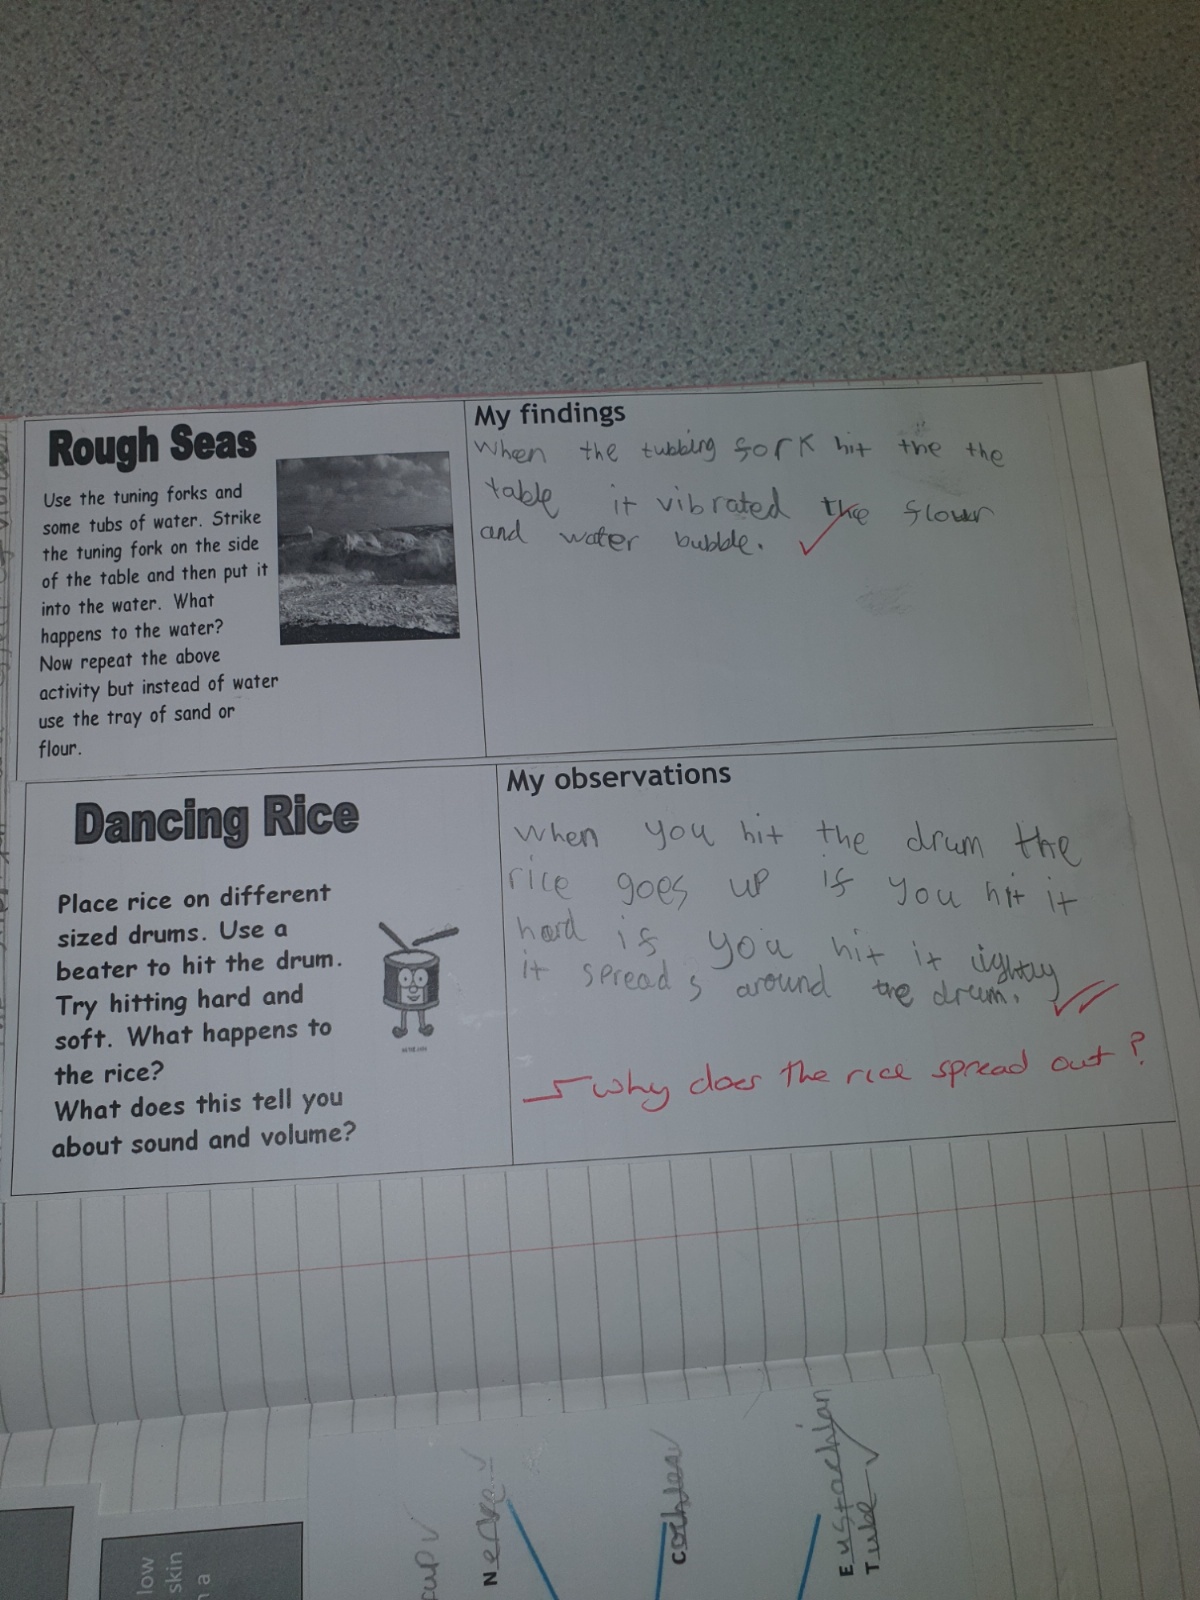 Rough Seas
Use the tuning forks and
some tubs of water. Strike
the tuning fork on the side
of the table and then put it
into the water. What
happens to the water?
Now repeat the above
activity but instead of water
use the tray of sand or
flour.
My findings
When the tubbing fork hit the the
table it vibrated the flour
and water bubble.
Dancing Rice
Place rice on different
sized drums. Use a
beater to hit the drum.
Try hitting hard and
soft. What happens to
the rice?
What does this tell you
about sound and volume?
My observations
When you hit the drum the
rice goes up if you hit it
hard if you hit it lightly
it spreads around the drum.
Why does the rice spread out?
low
skin
n a
Nerve
Cochlear
Eustachian
Tube